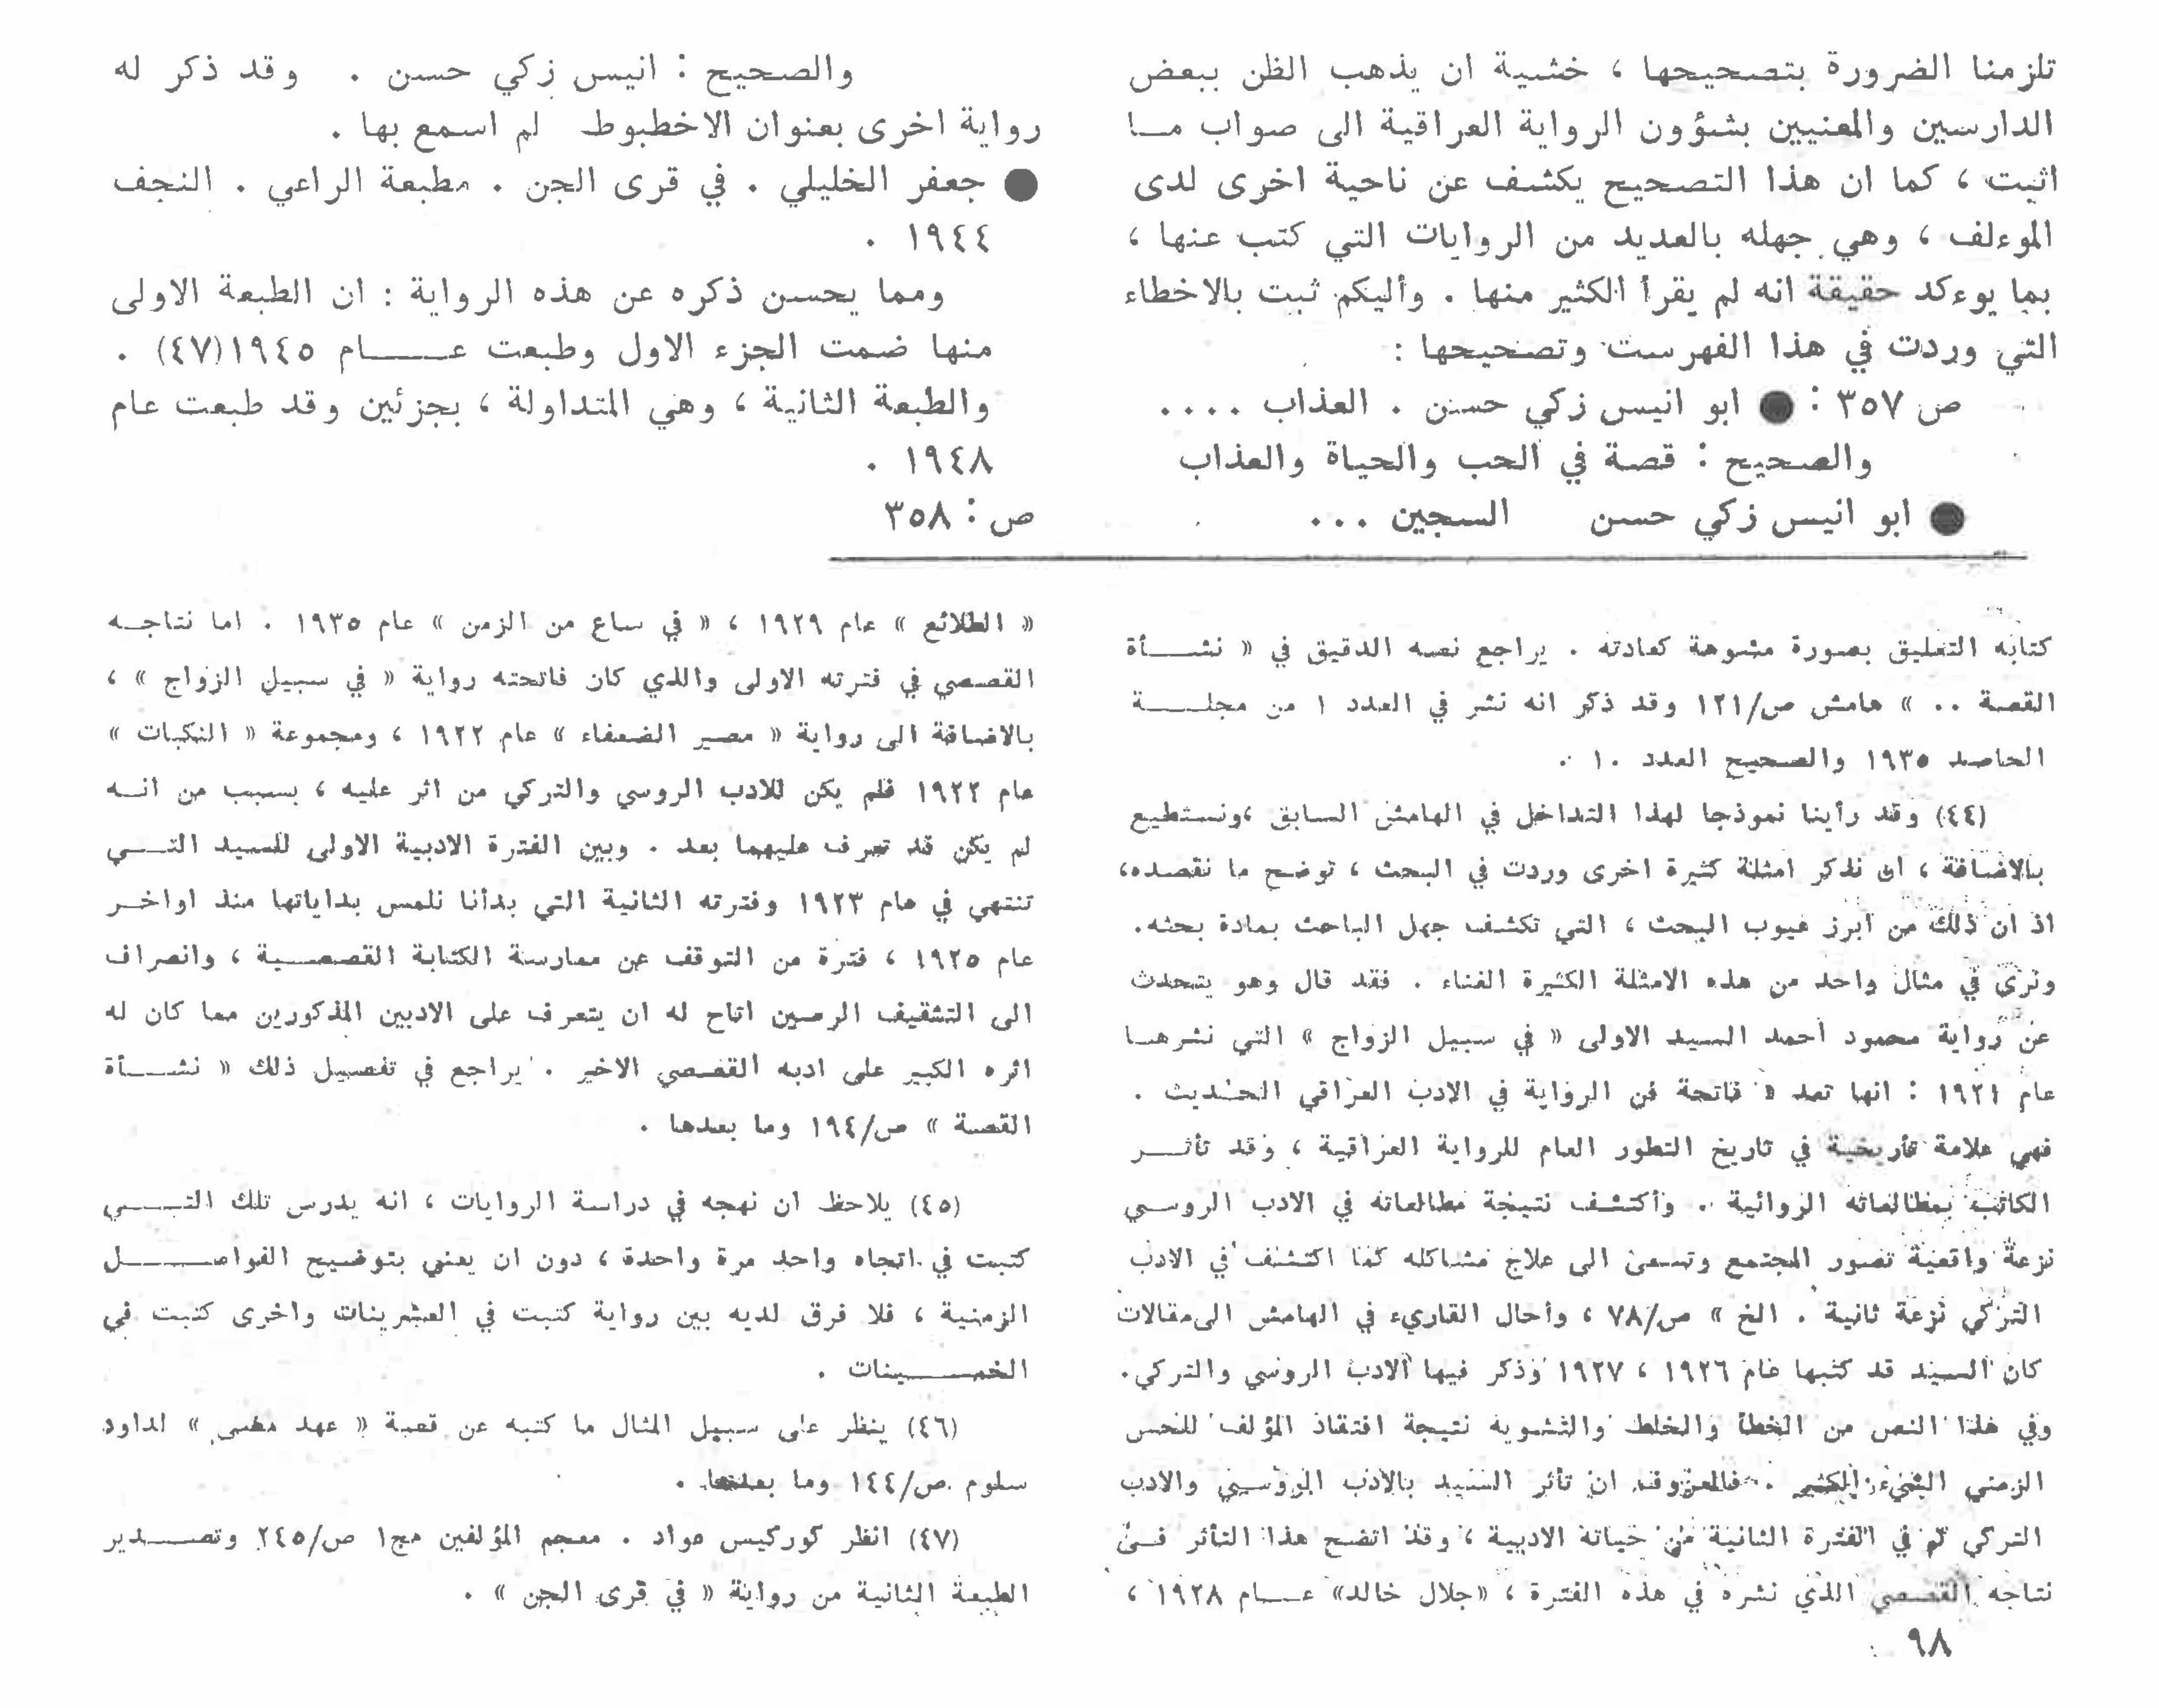 تلزمنا الضرورة بتصحيحها ، خشية ان يذهب الظن ببعض
الدارسين والمعنيين بشؤون الرواية العراقية الى صواب مـــا
اثبت ، كما ان هذا التصحيح يكشف عن ناحية اخرى لدى
الموءلف ، وهي جهله بالعديد من الروايات التي كتب عنها ،
بما يوءكد حقيقة انه لم يقرأ الكثير منها . وأليكم ثبت بالاخطاء
التي وردت في هذا الفهرست وتصحيحها :
ص ٣٥٧ : ● ابو انيس زكي حسن . العذاب ....
والصحيح : قصة في الحب والحياة والعذاب
● ابو انيس زكي حسن السجين ...
والصحيح : انيس زكي حسن . وقد ذكر له
رواية اخرى بعنوان الاخطبوط لم اسمع بها .
● جعفر الخليلي . في قرى الجن . مطبعة الراعي . النجف
١٩٤٤ .
ومما يحسن ذكره عن هذه الرواية : ان الطبعة الاولى
منها ضمت الجزء الاول وطبعت عـــــام ١٩٤٥(٤٧) .
والطبعة الثانية ، وهي المتداولة ، بجزئين وقد طبعت عام
١٩٤٨ .
ص : ٣٥٨
كتابه التعليق بصورة مشوهة كعادته . يراجع نصه الدقيق في « نشـــأة
القصة .. » هامش ص/١٢١ وقد ذكر انه نشر في العدد ١ من مجلـــــة
الحاصد ١٩٣٥ والصحيح العدد ١٠ .
(٤٤) وقد رأينا نموذجا لهذا التداخل في الهامش السابق ،ونستطيع
بالاضافة ، ان نذكر امثلة كثيرة اخرى وردت في البحث ، توضح ما نقصده،
اذ ان ذلك من أبرز عيوب البحث ، التي تكشف جهل الباحث بمادة بحثه.
ونرى في مثال واحد من هذه الامثلة الكثيرة الغناء . فقد قال وهو يتحدث
عن رواية محمود أحمد السيد الاولى « في سبيل الزواج » التي نشرهـــا
عام ١٩٢١ : انها تعد « فاتحة فن الرواية في الادب العراقي الحديث .
فهي علامة تأريخية في تاريخ التطور العام للرواية العراقية ، وقد تأثـــر
الكاتب بمطالعاته الروائية . وأكتشف نتيجة مطالعاته في الادب الروسـي
نزعة واقعية تصور المجتمع وتسعى الى علاج مشاكله كما اكتشف في الادب
التركي نزعة ثانية . الخ » ص/٧٨ ، وأحال القاريء في الهامش الى مقالات
كان السيد قد كتبها عام ١٩٢٦ ، ١٩٢٧ وذكر فيها الادب الروسي والتركي.
وفي هذا النص من الخطأ والخلط والتشويه نتيجة افتقاد المؤلف للحس
الزمني الشيء الكثير . فالمعروف ان تأثر السيد بالادب الروسي والادب
التركي تم في الفترة الثانية من حياته الادبية ، وقد اتضح هذا التأثر فـي
نتاجه القصصي الذي نشره في هذه الفترة ، «جلال خالد» عـــام ١٩٢٨ ،
« الطلائع » عام ١٩٢٩ ، « في ساع من الزمن » عام ١٩٣٥ . اما نتاجـه
القصصي في فترته الاولى والذي كان فاتحته رواية « في سبيل الزواج » ،
بالاضافة الى رواية « مصير الضعفاء » عام ١٩٢٢ ، ومجموعة « النكبات »
عام ١٩٢٢ فلم يكن للادب الروسي والتركي من اثر عليه ، بسبب من انـه
لم يكن قد تعرف عليهما بعد . وبين الفترة الادبية الاولى للسيد التـــي
تنتهي في عام ١٩٢٣ وفترته الثانية التي بدأنا نلمس بداياتها منذ اواخـر
عام ١٩٢٥ ، فترة من التوقف عن ممارسة الكتابة القصصـــية ، وانصراف
الى التثقيف الرصين اتاح له ان يتعرف على الادبين المذكورين مما كان له
اثره الكبير على ادبه القصصي الاخير . يراجع في تفصيل ذلك « نشـــأة
القصة » ص/١٩٤ وما بعدها .
(٤٥) يلاحظ ان نهجه في دراسة الروايات ، انه يدرس تلك التـــــي
كتبت في اتجاه واحد مرة واحدة ، دون ان يعني بتوضيح الفواصـــــل
الزمنية ، فلا فرق لديه بين رواية كتبت في العشرينات واخرى كتبت في
الخمـــــينات .
(٤٦) ينظر على سبيل المثال ما كتبه عن قصة « عهد مضى » لداود
سلوم ص/١٤٤ وما بعدها .
(٤٧) انظر كوركيس عواد . معجم المؤلفين مج١ ص/٢٤٥ وتصـــدير
الطبعة الثانية من رواية « في قرى الجن » .
٩٨